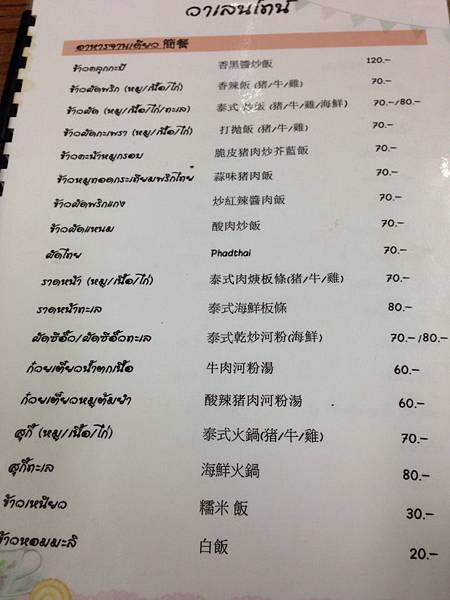 วาเลนไทน์
อาหารจานเดียว 簡餐
ข้าวคลุกกะปิ 香黑醬炒飯 120.-
ข้าวผัดพริก (หมู/เนื้อ/ไก่) 香辣飯 (豬/牛/雞) 70.-
ข้าวผัด (หมู/เนื้อ/ไก่/ทะเล) 泰式 炒飯 (豬/牛/雞/海鮮) 70.-/80.-
ข้าวผัดกะเพรา (หมู/เนื้อ/ไก่) 打拋飯 (豬/牛/雞) 70.-
ข้าวคะน้าหมูกรอบ 脆皮豬肉炒芥藍飯 70.-
ข้าวหมูทอดกระเทียมพริกไทย 蒜味豬肉飯 70.-
ข้าวผัดพริกแกง 炒紅辣醬肉飯 70.-
ข้าวผัดแหนม 酸肉炒飯 70.-
ผัดไทย Phadthai 70.-
ราดหน้า (หมู/เนื้อ/ไก่) 泰式肉焿板條(豬/牛/雞) 70.-
ราดหน้าทะเล 泰式海鮮板條 80.-
ผัดซีอิ๊ว/ผัดซีอิ๊วทะเล 泰式乾炒河粉(海鮮) 70.-/80.-
ก๋วยเตี๋ยวน้ำตกเนื้อ 牛肉河粉湯 60.-
ก๋วยเตี๋ยวหมูต้มยำ 酸辣豬肉河粉湯 60.-
สุกี้ (หมู/เนื้อ/ไก่) 泰式火鍋(豬/牛/雞) 70.-
สุกี้ทะเล 海鮮火鍋 80.-
ข้าวเหนียว 糯米 飯 30.-
ข้าวหอมมะลิ 白飯 20.-